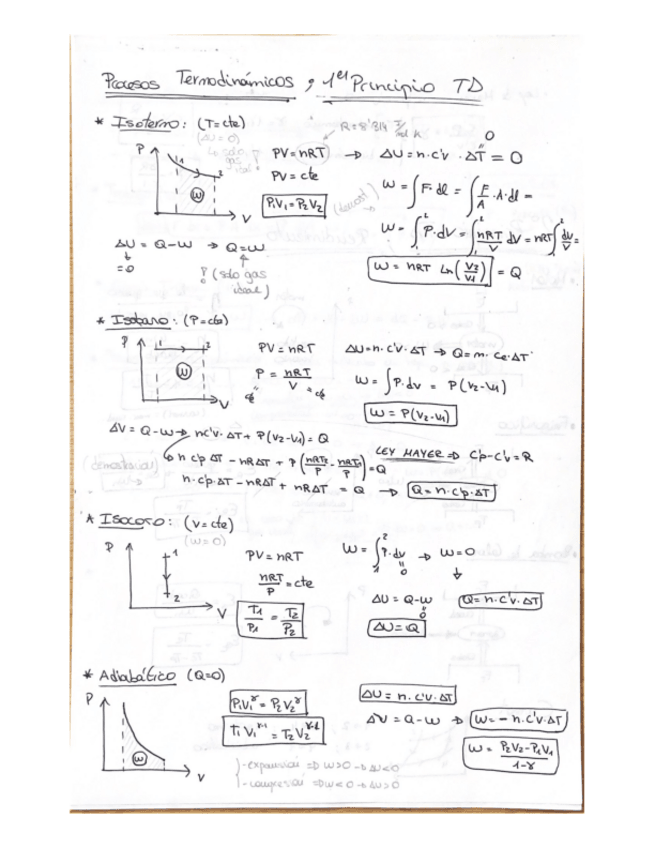 Procesos Termodinámicos y 1er Principio TD
* Isotermo: (T=cte)
(ΔU = 0)
R=8'314 J/mol K
PV=nRT → ΔU=n·c'v·ΔT = 0
0
PV=cte
P₁V₁=P₂V₂
W = ∫F·dl = ∫F/A·A·dl =
W = ∫₁² P·dV = ∫₁² nRT/V dV = nRT∫₁² dV/V =
W = nRT Ln(V₂/V₁) = Q
P
1
2
W
V
ΔU = Q-W → Q=W
=0
(solo gas
ideal)
* Isobaro: (P=cte)
P
1
2
W
V
PV=nRT
P = nRT/V
ΔU=n·c'v·ΔT → Q=m·ce·ΔT
W = ∫P·dv = P(V₂-V₁)
W = P(V₂-V₁)
ΔV = Q-W → nc'v·ΔT + P(V₂-V₁) = Q
n c'p ΔT - nRΔT + P(nRT₂/P - nRT₁/P) = Q
LEY MAYER ⇒ C'p-C'v=R
n·c'p·ΔT - nRΔT + nRΔT = Q → Q=n·c'p·ΔT
* Isocoro: (V=cte)
(W=0)
P
1
2
V
PV=nRT
nRT/P = cte
T₁/P₁ = T₂/P₂
W = ∫₁² P·dv → W=0
0
ΔU = Q-W
0
Q=n·c'v·ΔT
ΔU=Q
* Adiabático (Q=0)
P
W
V
P₁V₁^γ = P₂V₂^γ
T₁V₁^γ-1 = T₂V₂^γ-1
ΔU = n·c'v·ΔT
ΔU = Q-W ⇒ W=-n·c'v·ΔT
W = P₂V₂-P₁V₁/1-γ
-expansión ⇒ W>0 → ΔU<0
-compresión ⇒ W<0 → ΔU>0